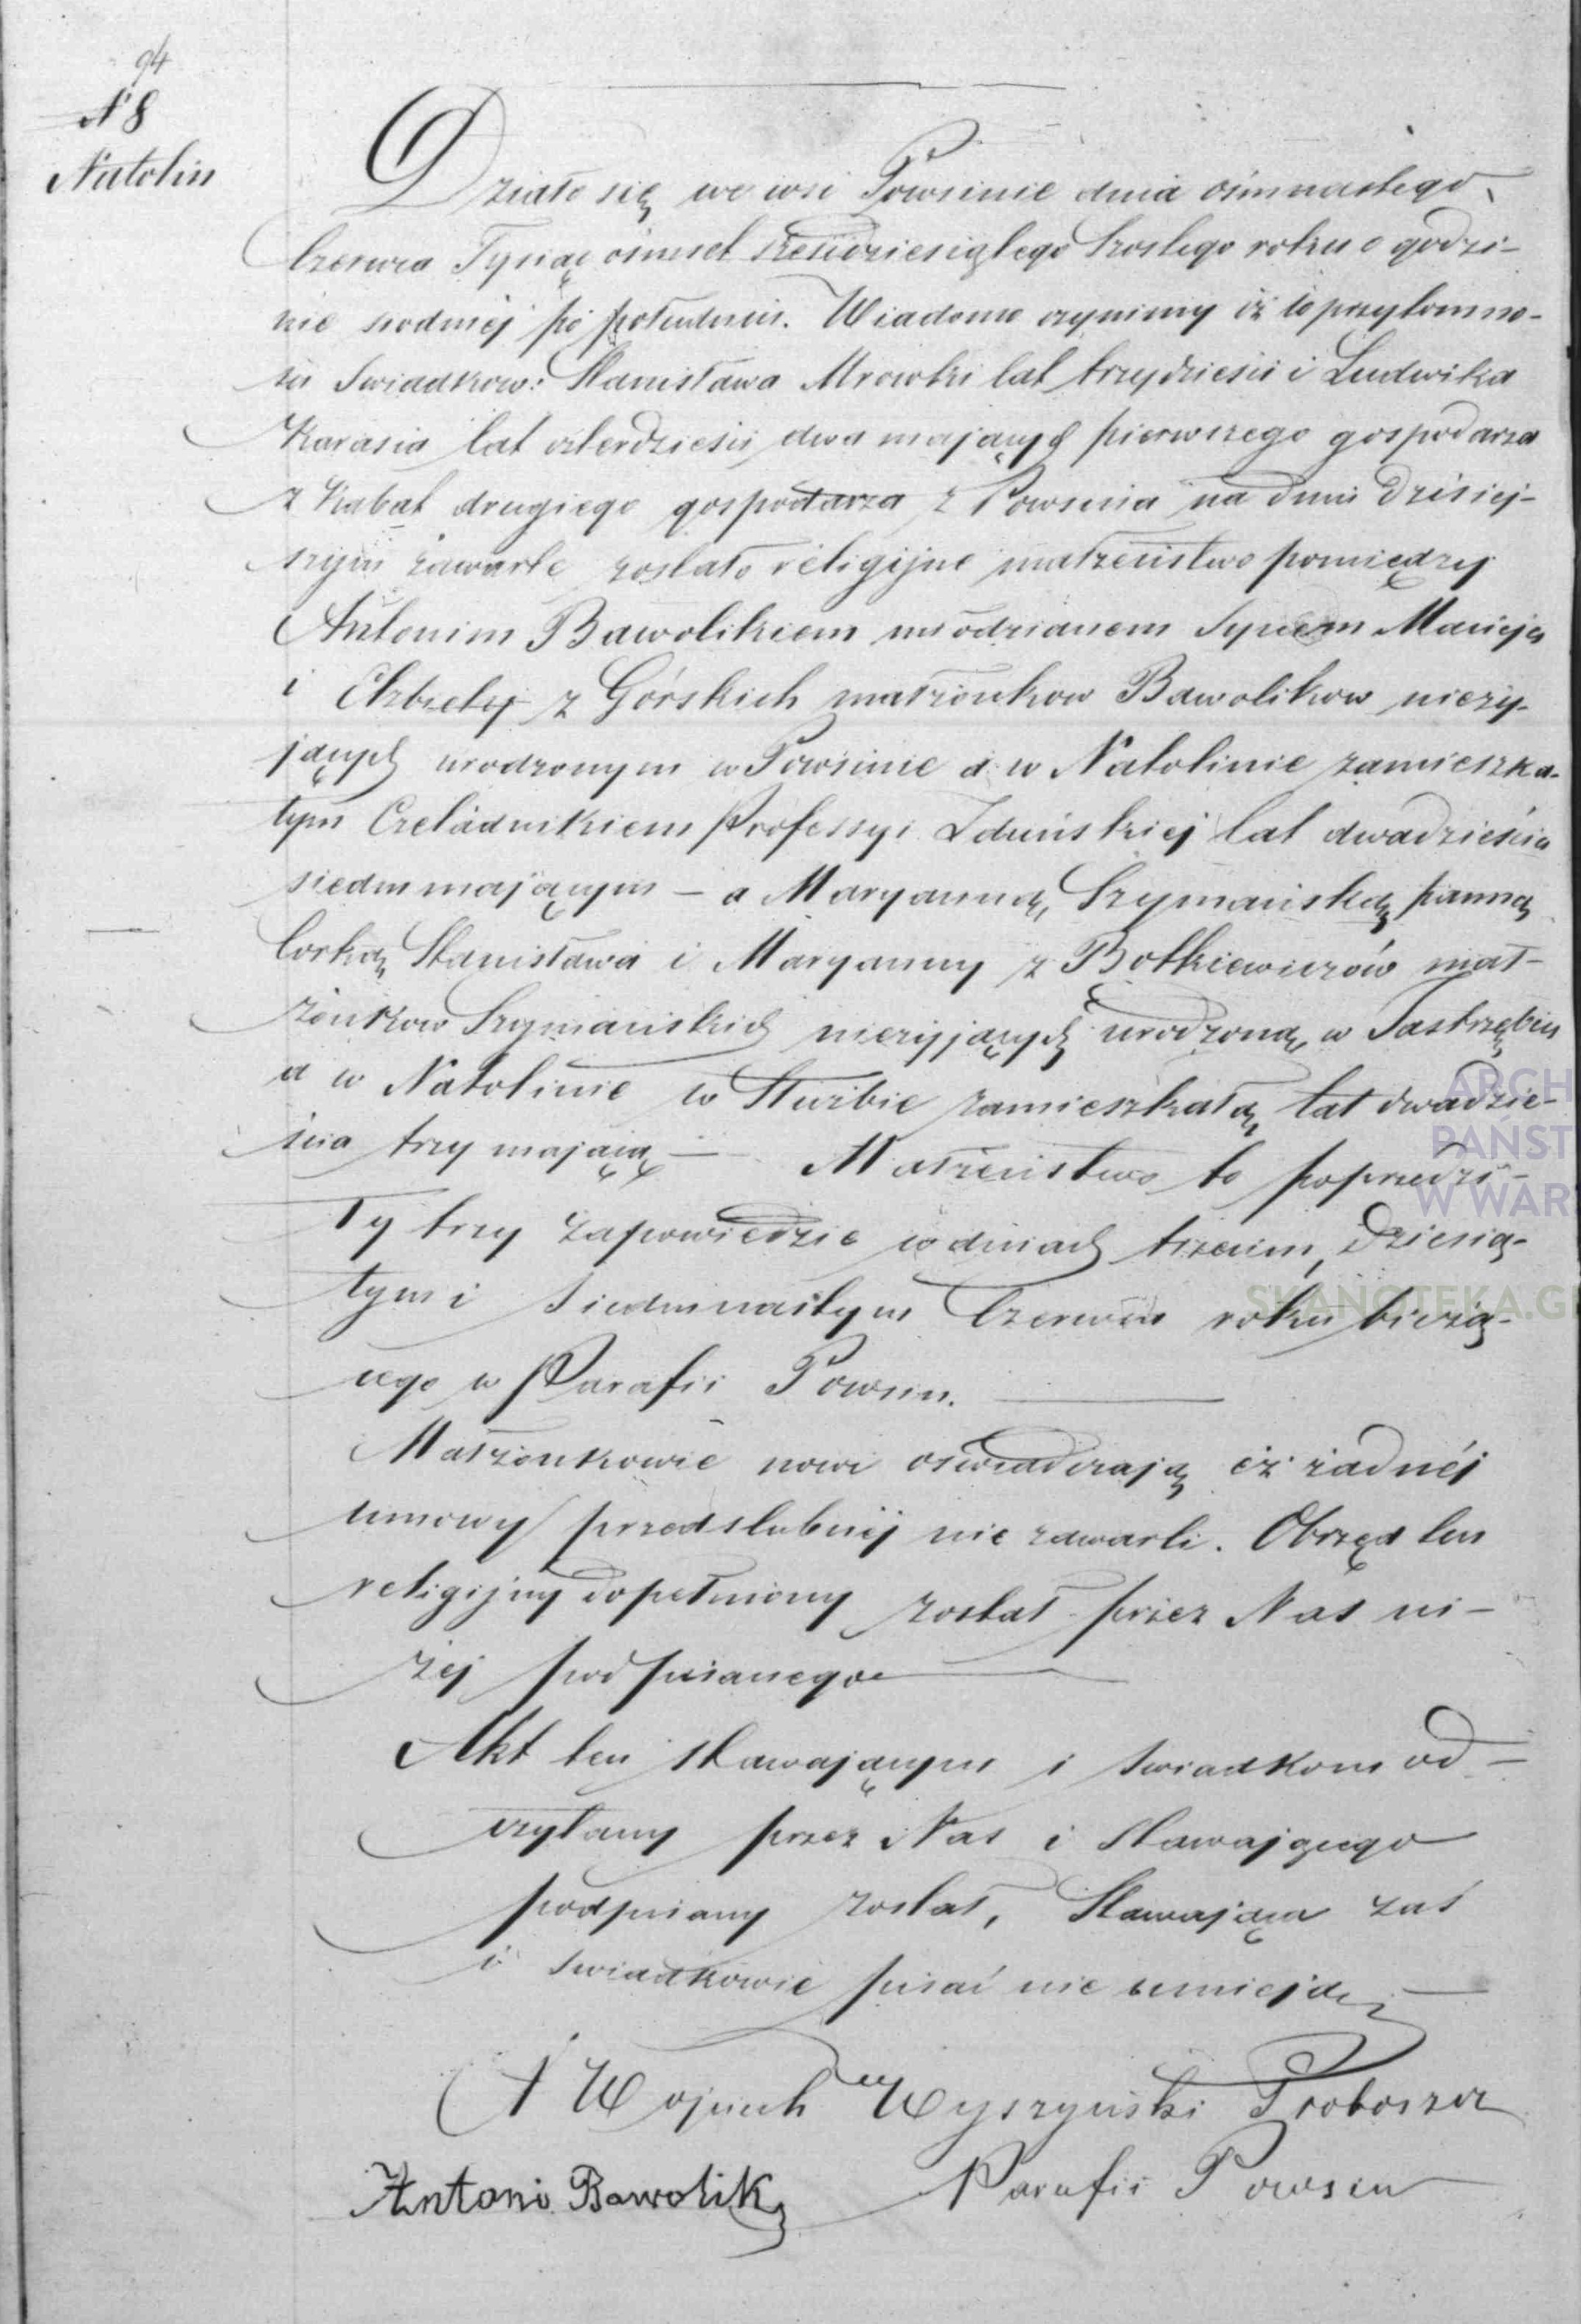 94
N 8
Natolin
Działo się we wsi Powsinie dnia ośmnastego
Czerwca Tysiąc ośmset sześćdziesiątego szostego roku o godzi-
nie siodmej po południu. Wiadomo czynimy iż w przytomno-
ści Swiadkow: Stanisława Mrowki lat trzydzieści i Ludwika
Karasia lat czterdzieści dwa mających pierwszego gospodarza
z Kabat drugiego gospodarza z Powsina na dniu dzisiej-
szym zawarte zostało religijne małżeństwo pomiędzy
Antonim Bawolikiem młodzianem Synem Macieja
i Elzbiety z Górskich małżonkow Bawolikow nieży-
jących urodzonym w Powsinie a w Natolinie zamieszka-
łym Czeladnikiem Professyi Zduńskiej lat dwadzieścia
siedm mającym – a Maryanną Szymańską panną
Corką Stanisława i Maryanny z Bołkiewiczów mał-
żonkow Szymańskich nieżyjących urodzoną w Jastrzębiu
a w Natolinie w Służbie zamieszkałą lat dwadzie-
ścia trzy mającą – Małżeństwo to poprzedzi-
ły trzy zapowiedzie w dniach trzecim, dziesią-
tym i Siedmnastym Czerwca roku bieżą-
cego w Parafii Powsin.
Małżonkowie nowi oświadczają iż żadnéj
umowy przedslubnéj nie zawarli. Obrzęd ten
religijny dopełniony został przez Nas ni-
żéj podpisanego
Akt ten stawającym i swiadkom od-
czytany przez Nas i Stawającego
podpisany został, Stawająca zaś
i swiadkowie pisać nie umieją
X Wojciech Wyszyński Proboszcz
Parafii Powsin
Antoni Bawolik
ARCH
PAŃST
W WAR
SKANOTEKA.G